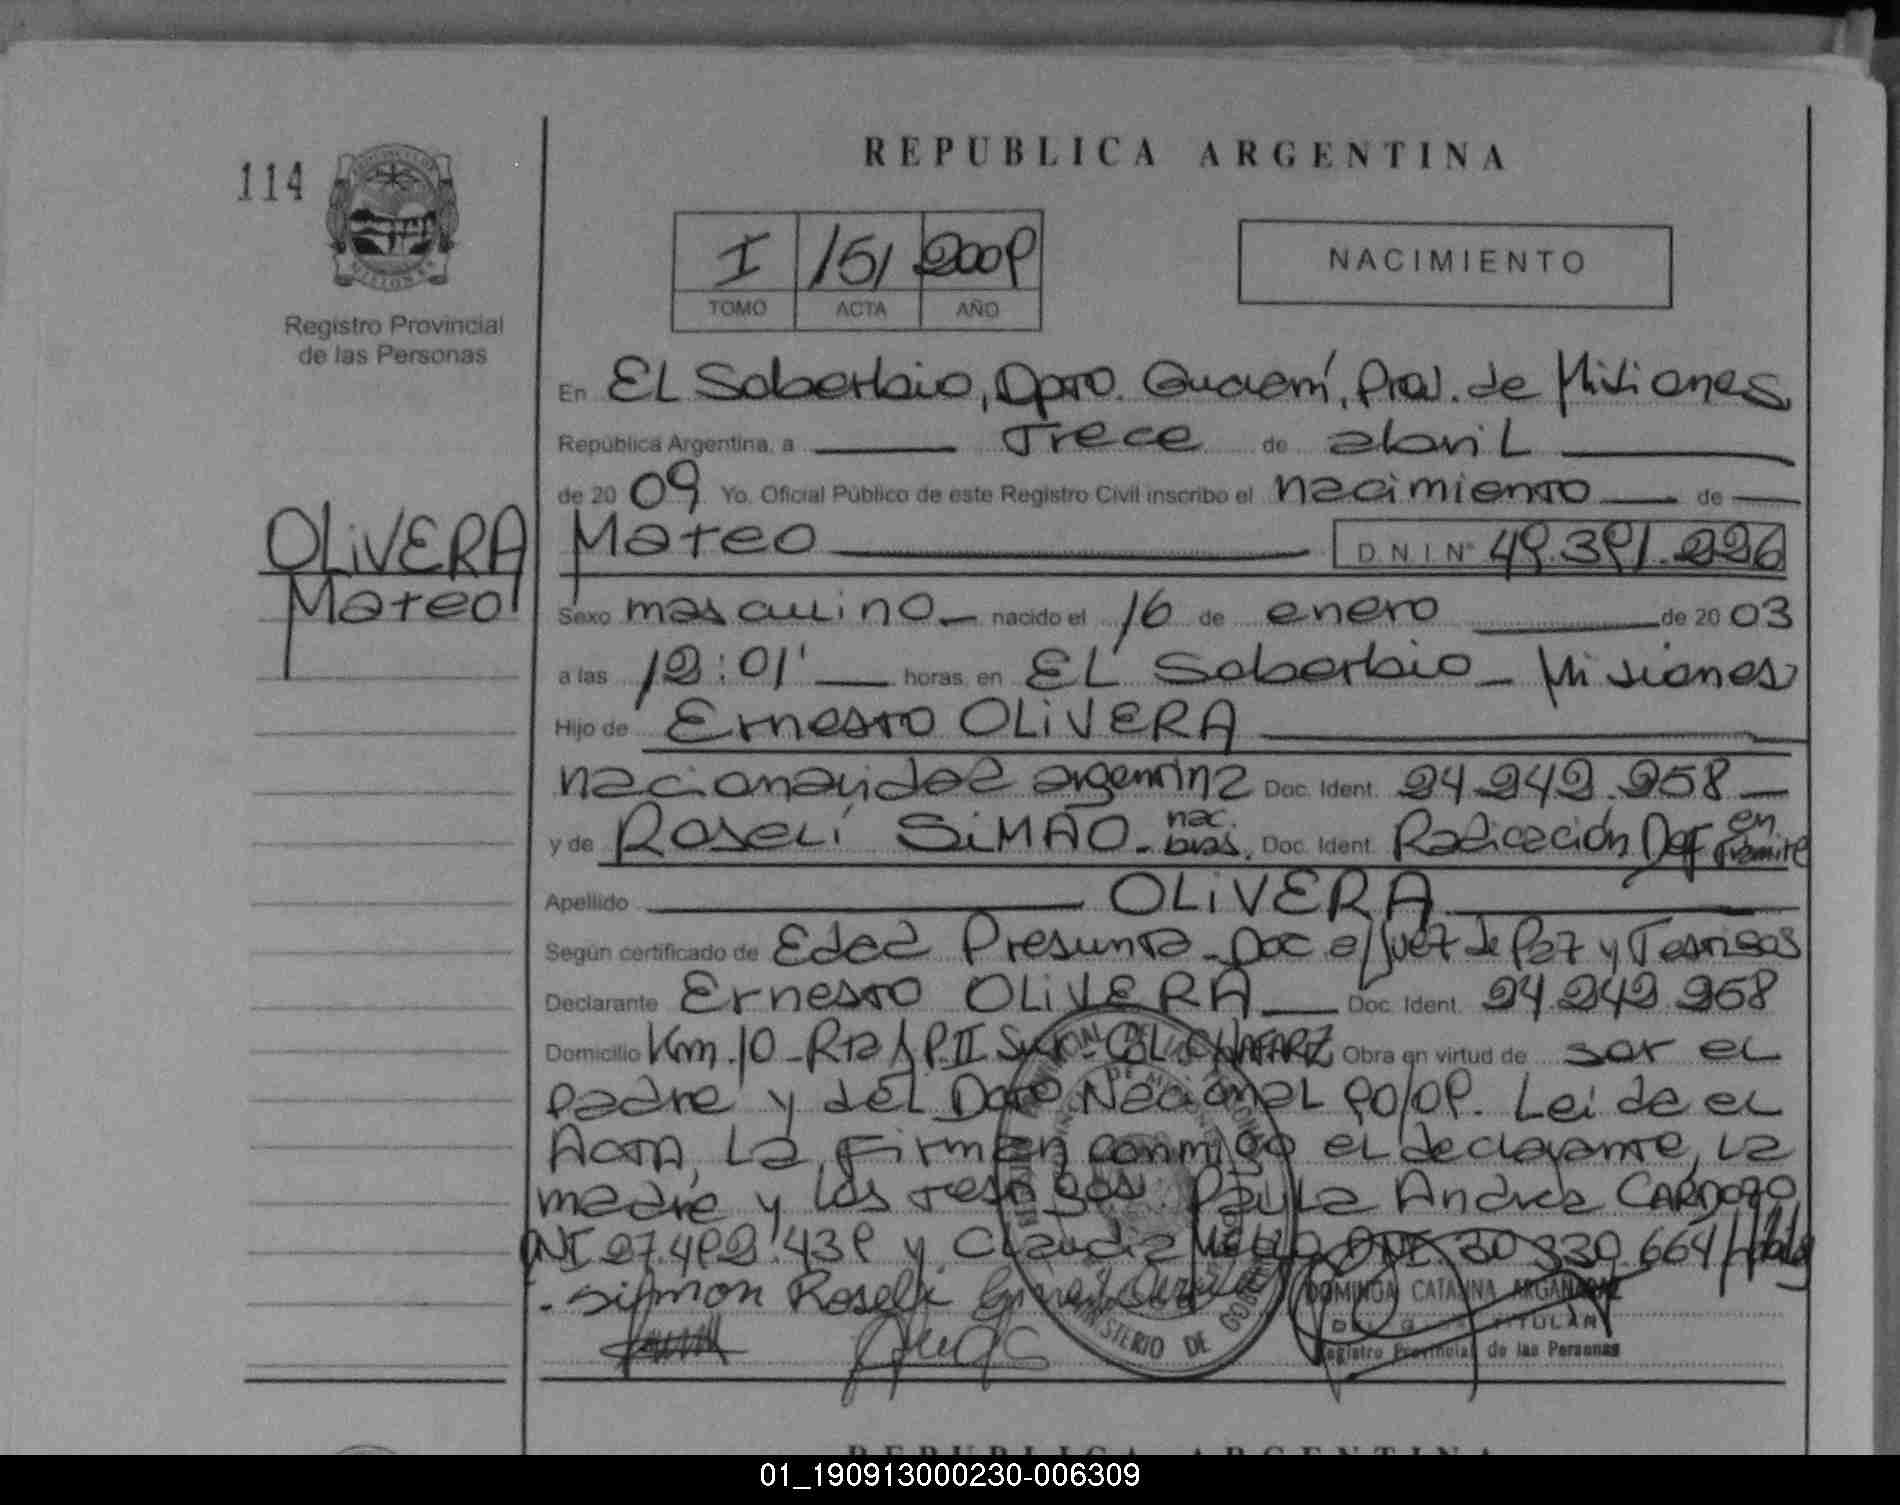 REPUBLICA ARGENTINA
114
I 151 2009
TOMO ACTA AÑO
NACIMIENTO
Registro Provincial
de las Personas
En El Soberbio, Dpto. Guaraní, Prov. de Misiones
República Argentina, a Trece de abril
de 2009 Yo. Oficial Público de este Registro Civil inscribo el nacimiento de
OLIVERA
Mateo
Mateo D.N.I. Nº 49.391.226
Sexo masculino nacido el 16 de enero de 2003
a las 12:01' horas, en El Soberbio - Misiones
Hijo de Ernesto OLIVERA
nacionalidad argentina Doc. Ident. 24.242.258
y de Roseli SIMÃO - nac. bras. Doc. Ident. Radicación Def. en trámite
Apellido OLIVERA
Según certificado de Edad Presunta - Doc. e/Juez de Paz y Testigos
Declarante Ernesto OLIVERA Doc. Ident. 24.242.258
Domicilio Km. 10 - Rta P. II - Col. CHAFARIZ Obra en virtud de ser el
padre y del Dcto Nacional 90/09. Leída el
Acta, la firman conmigo el declarante, la
madre y los testigos Paula Andrea CARDOZO
DNI 27.492.439 y Claudia DNI. 30.330.664
Simon Roseli
DOMINGA CATALINA
TITULAR
Registro Provincial de las Personas
MINISTERIO DE GOBIERNO
REPUBLICA ARGENTINA
01_190913000230-006309